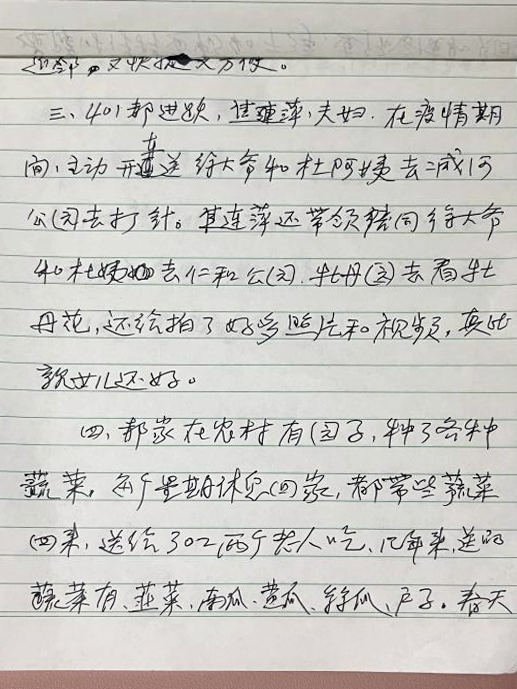 又快捷又方便。
三、401郝进跃,焦连萍夫妇.在疫情期
间,主动开车送徐大爷和杜阿姨去二减河
公园去打针。焦连萍还带领陪同徐大爷
和杜姨去仁和公园.牡丹园去看牡
丹花,还给拍了好多照片和视频,真比
亲女儿还好。
四、郝家在农村有园子,种了各种
蔬菜,每个星期休息回家,都带些蔬菜
回来,送给302两个老人吃,几年来,送的
蔬菜有、韭菜、南瓜、黄瓜、丝瓜、芦子。春天